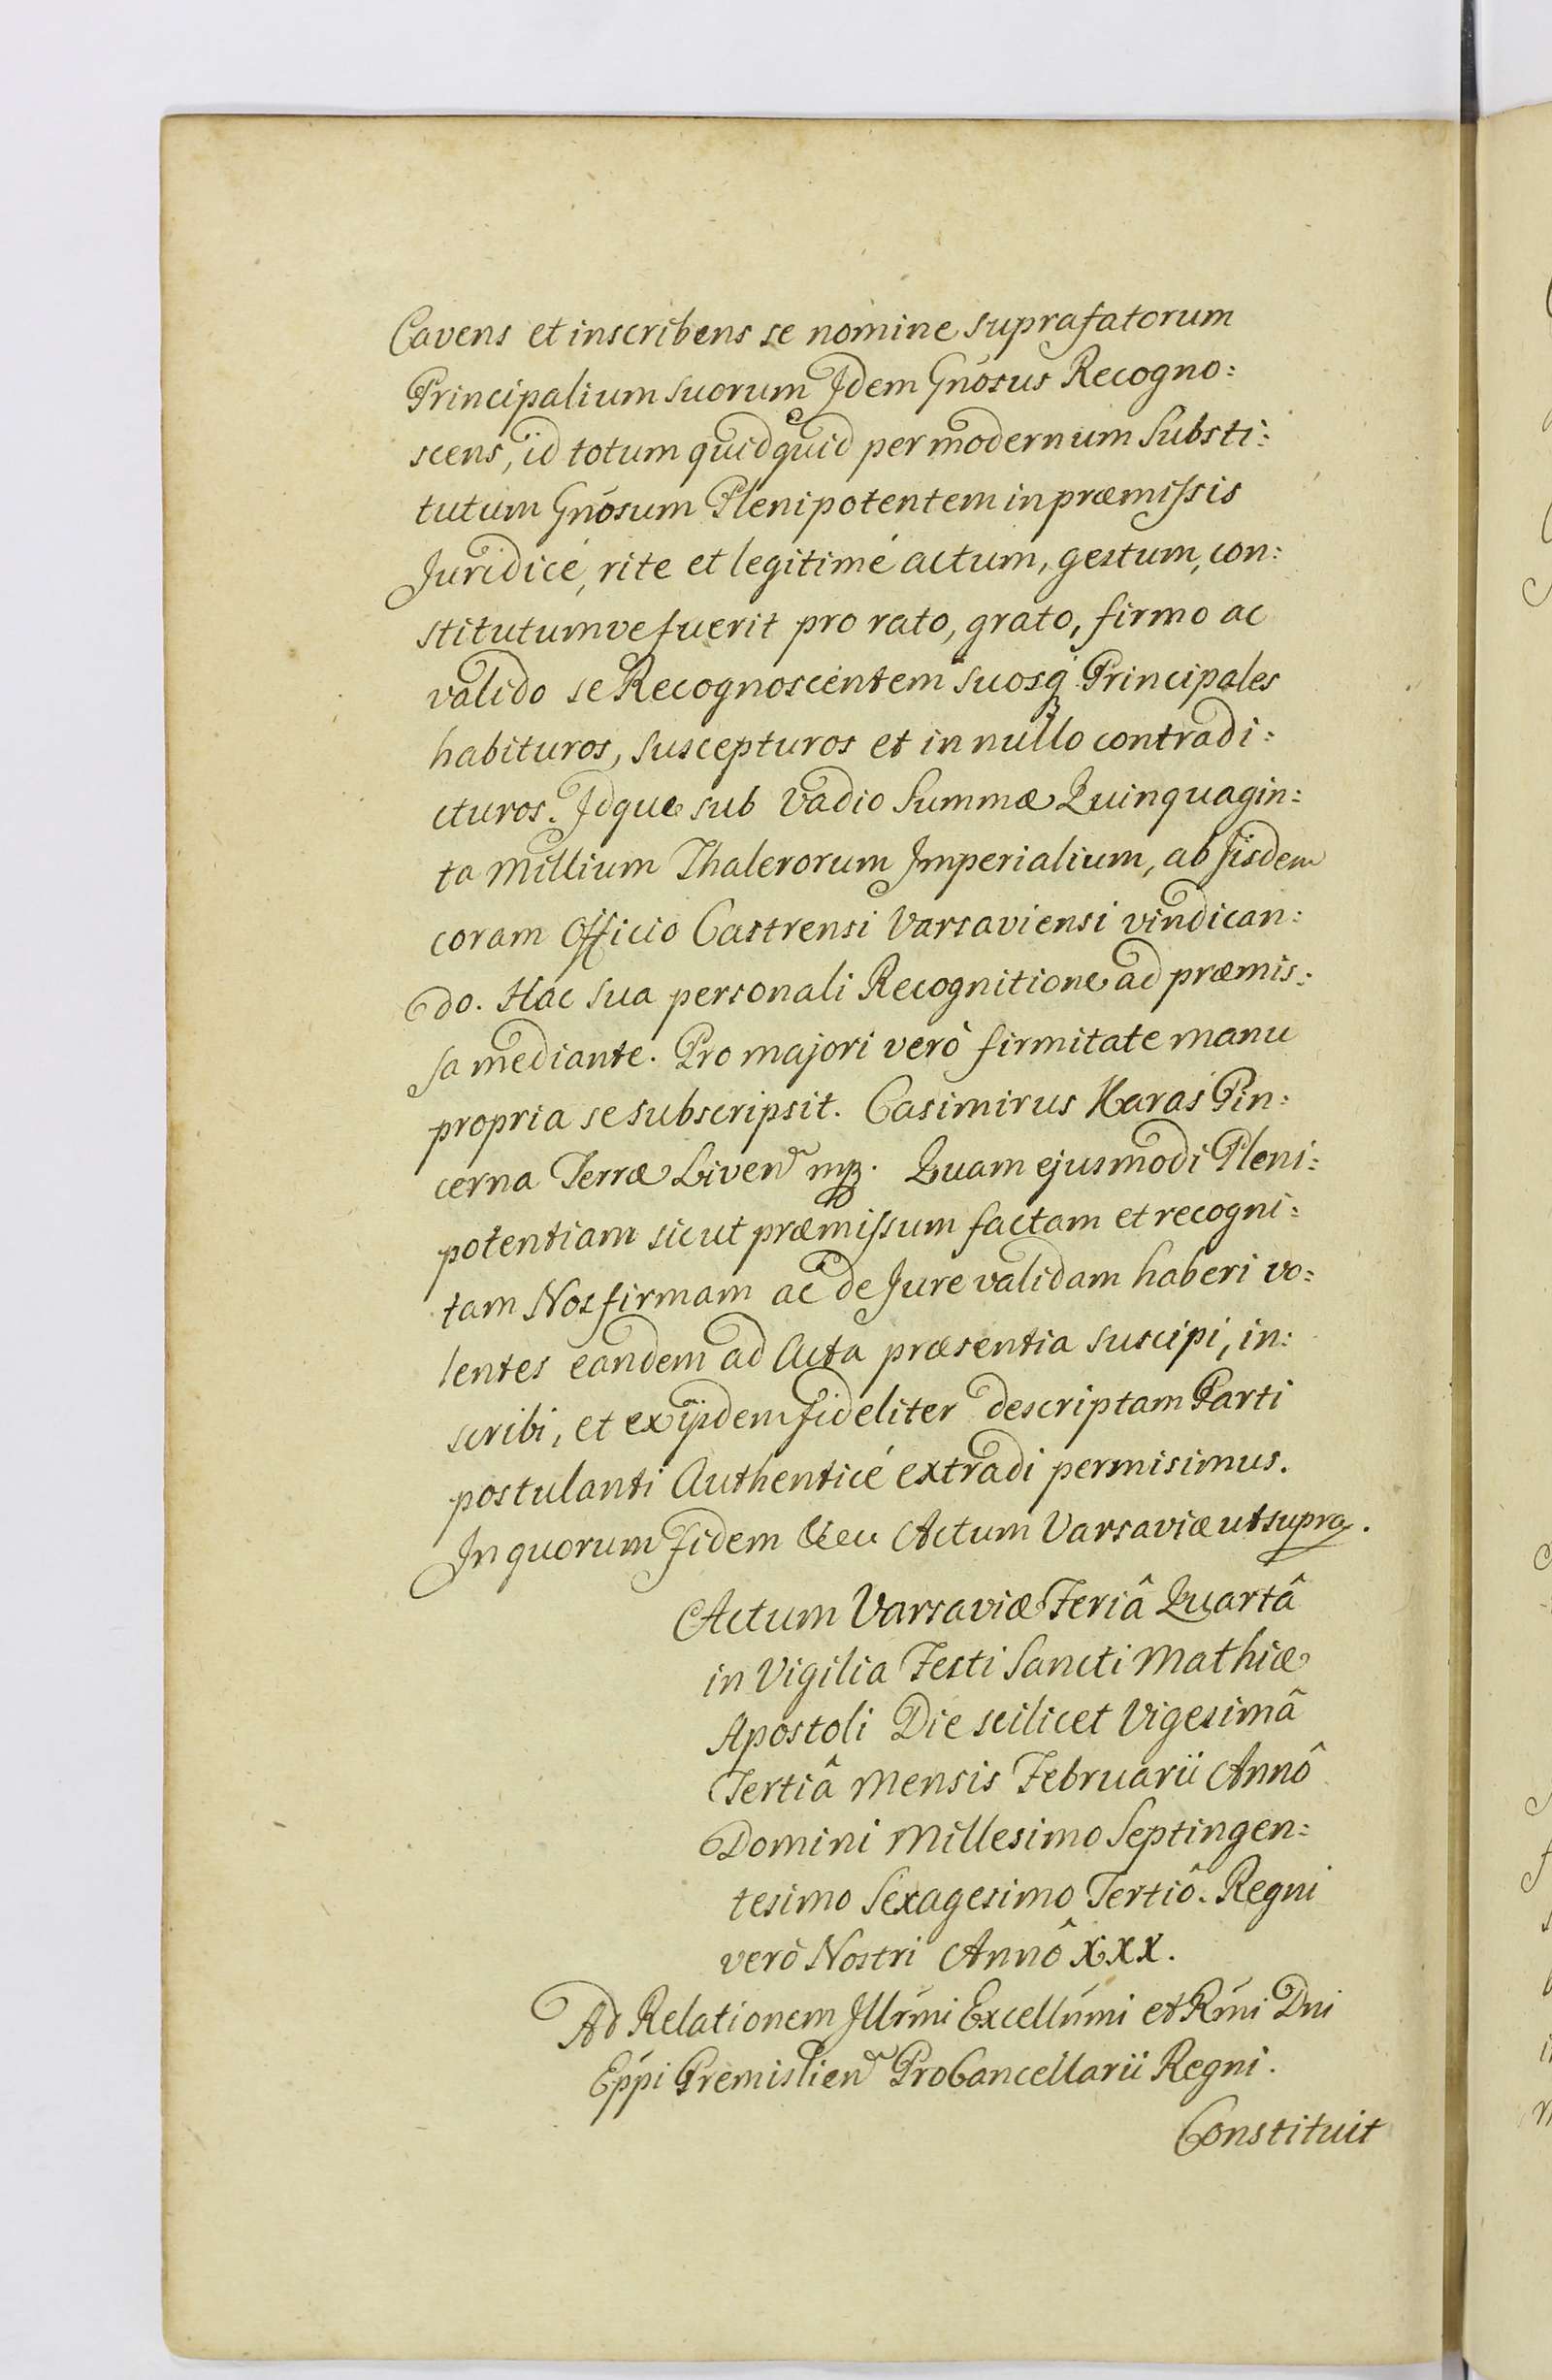 Cavens et inscribens se nomine suprafatorum
Principalium suorum Idem Gnosus Recogno:
scens, id totum quidquid per modernum Substi:
tutum Gnosum Plenipotentem in præmissis
Juridicé, rite et legitimé actum, gestum, con:
stitutumve fuerit pro rato, grato, firmo ac
valido se Recognoscentem suosq Principales
habituros, suscepturos et in nullo contradi:
cturos. Idque sub Vadio Summæ Quinquagin:
ta Millium Thalerorum Imperialium, ab Iisdem
coram Officio Castrensi Varsaviensi vindican:
do. Hac sua personali Recognitione ad præmis:
sa mediante. Pro majori verò firmitate manu
propria se subscripsit. Casimirus Karaś Pin:
cerna Terræ Liven mp. Quam ejusmodi Pleni:
potentiam sicut præmissum factam et recogni:
tam Nos firmam ac de Jure validam haberi vo:
lentes eandem ad Acta præsentia suscipi, in:
scribi, et ex ijsdem fideliter descriptam Parti
postulanti Authenticé extradi permisimus.
In quorum fidem &cu Actum Varsaviæ ut supra.
Actum Varsaviæ Feriâ Quartâ
in Vigilia Festi Sancti Mathiæ
Apostoli Die scilicet Vigesimâ
Tertiâ Mensis Februarii Annô
Domini Millesimo Septingen:
tesimo Sexagesimo Tertiô. Regni
verò Nostri Annô XXX.
Ad Relationem Illrmi Excellmi et Rmi Dni
Eppi Premislien ProCancellarii Regni.
Constituit